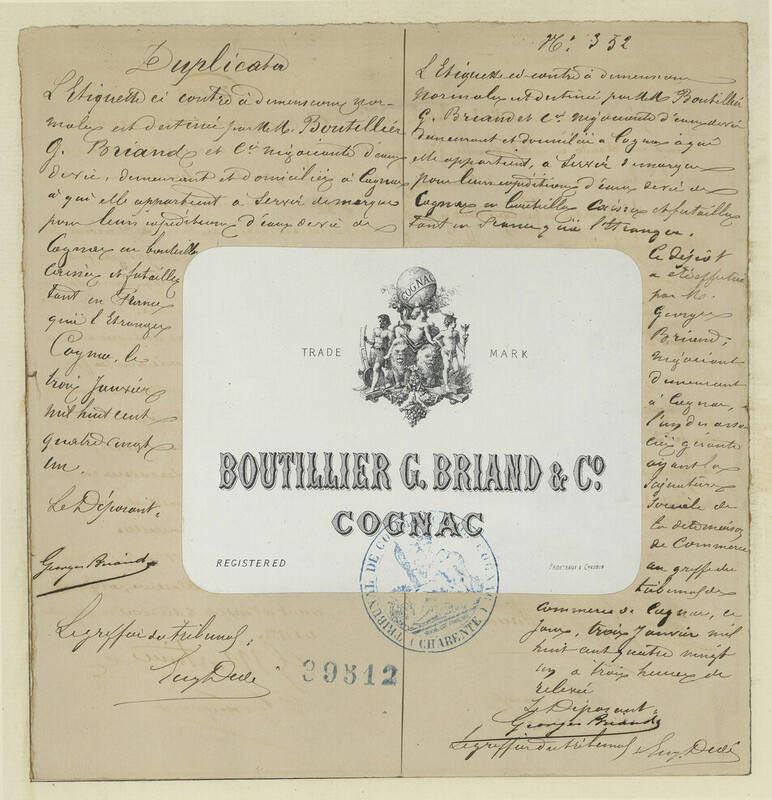 Duplicata
L'Etiquette ci contre à dimensions nor-
males est destinée par M.M. Boutillier
G. Briand et Cie négociants d'eaux
de vie, demeurant et domiciliés à Cognac
à qui elle appartient à servir de marque
pour leurs expéditions d'eaux de vie de
Cognac en bouteilles
Caisses et futailles
tant en France
qu'à l'Etranger
Cognac, le
trois Janvier
mil huit cent
quatre vingt
un.
Le Déposant,
Georges Briand
Le greffier du tribunal,
Eug. Dedé
No. 352
L'Etiquette ci-contre à dimensions
normales est destinée par M.M. Boutillier
G. Briand et Cie négociants d'eaux de vie
demeurant et domiciliés à Cognac à qui
elle appartient, à servir de marque
pour leurs expéditions d'eaux de vie de
Cognac en bouteilles Caisses et futailles
tant en France qu'à l'Etranger.
Le dépôt
a été effectué
par M.
Georges
Briand,
négociant
demeurant
à Cognac,
l'un des asso-
ciés gérants
ayant la
signature
sociale de
la dite maison
de Commerce
au greffe du
tribunal de
Commerce de Cognac, ce
jour, trois Janvier mil
huit cent quatre vingt
un à trois heures de
relevée
Le Déposant,
Georges Briand
Le greffier du tribunal,
Eug. Dedé
COGNAC
TRADE MARK
BOUTILLIER G. BRIAND & Co.
COGNAC
REGISTERED
TRIBUNAL DE COMMERCE COGNAC
CHARENTE
39512